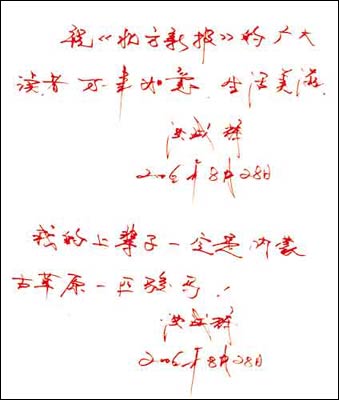 祝《北方新报》的广大
读者 万事如意 生活美满
洪战辉
2006年8月28日
我的上辈子一定是内蒙
古草原一匹骏马！
洪战辉
2006年8月28日